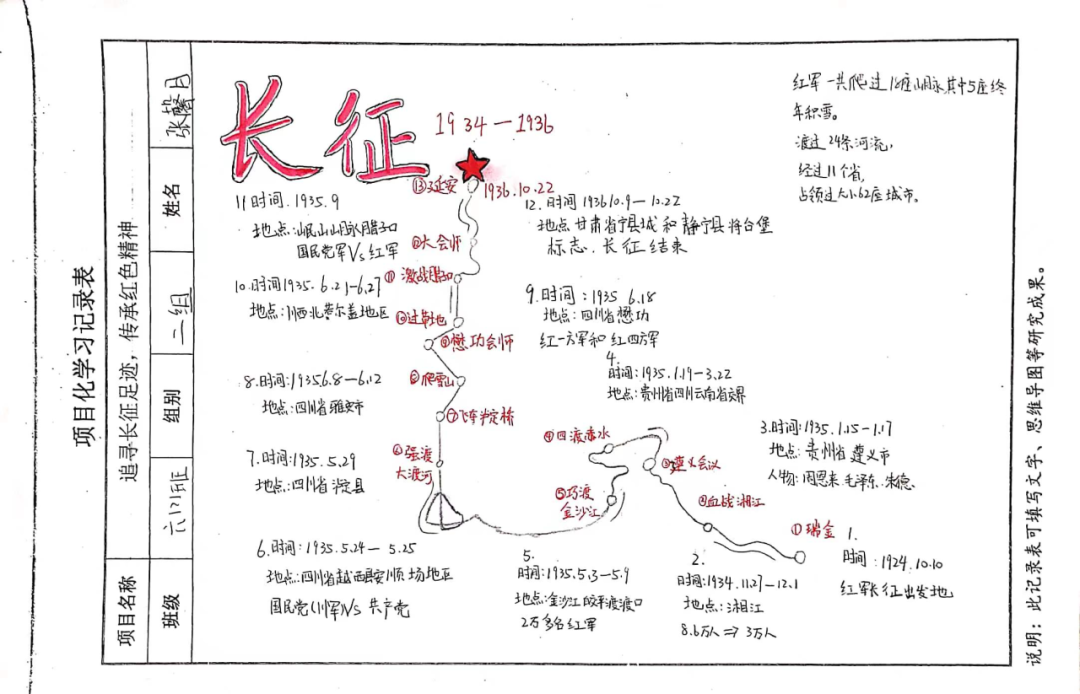 项目化学习记录表
项目名称
追寻长征足迹，传承红色精神
班级
六(2)班
组别
二组
姓名
张馨月
长征
1934—1936
红军一共爬过18座山脉其中5座终
年积雪。
渡过24条河流，
经过11个省，
占领过大小62座城市。
⑬延安
1936.10.22
11时间.1935.9
地点:岷山山脉腊子口
国民党军Vs红军
12.时间 1936 10.9—10.22
地点甘肃省宁县城和静宁县将台堡
标志.长征结束
⑫大会师
⑪激战腊子口
10.时间1935.6.21—6.27
地点:川西北草尔盖地区
⑩过草地
9.时间:1935 6.18
地点:四川省懋功
红一方军和红四方军
⑨懋功会师
4.
时间:1935.1.19—3.22
地点:贵州省四川云南省交界
8.时间:1935 6.8—6.12
地点:四川省雅安市
⑧爬雪山
⑦飞夺泸定桥
7.时间:1935.5.29
地点:四川省泸定县
⑥强渡
大渡河
④四渡赤水
3.时间:1935.1.15—1.17
地点:贵州省遵义市
人物:周恩来.毛泽东.朱德
③遵义会议
⑤巧渡
金沙江
②血战湘江
①瑞金
1.
时间:1924.10.10
红军长征出发地
6.时间:1935.5.24—5.25
地点:四川省越西县安顺场地区
国民党(川军)Vs共产党
5.
时间:1935.5.3—5.9
地点:金沙江皎平渡渡口
2万多名红军
2.
时间:1934.11.27—12.1
地点:湘江
8.6万人⇒3万人
说明：此记录表可填写文字、思维导图等研究成果。